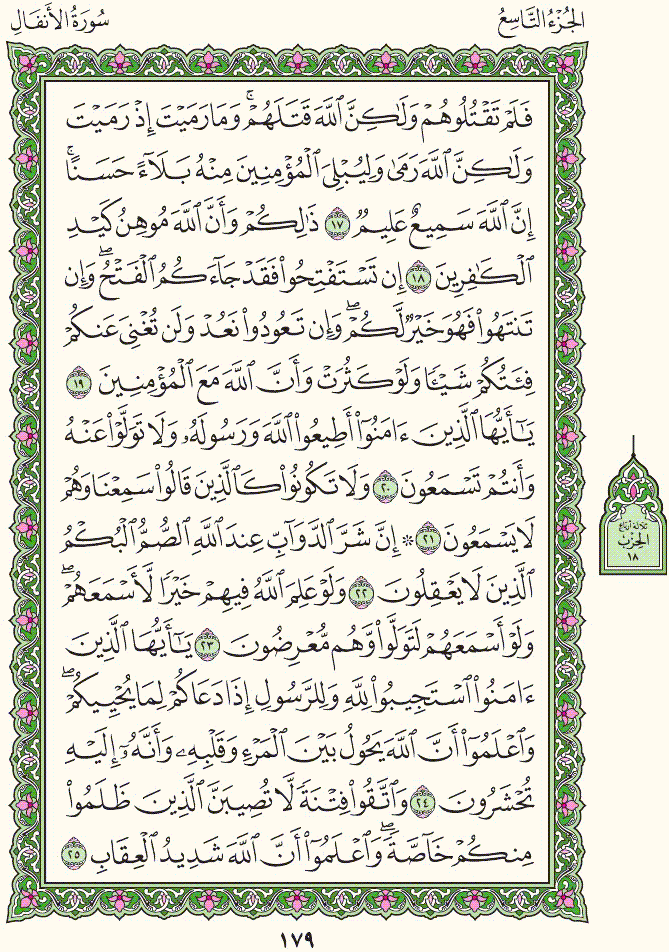 الجُزْءُ التَّاسِعُ
سُورَةُ الأَنفَالِ
فَلَمْ تَقْتُلُوهُمْ وَلَٰكِنَّ ٱللَّهَ قَتَلَهُمْۚ وَمَا رَمَيْتَ إِذْ رَمَيْتَ
وَلَٰكِنَّ ٱللَّهَ رَمَىٰ وَلِيُبْلِىَ ٱلْمُؤْمِنِينَ مِنْهُ بَلَآءً حَسَنًاۚ
إِنَّ ٱللَّهَ سَمِيعٌ عَلِيمٌ ١٧ ذَٰلِكُمْ وَأَنَّ ٱللَّهَ مُوهِنُ كَيْدِ
ٱلْكَٰفِرِينَ ١٨ إِن تَسْتَفْتِحُوا۟ فَقَدْ جَآءَكُمُ ٱلْفَتْحُۖ وَإِن
تَنتَهُوا۟ فَهُوَ خَيْرٌ لَّكُمْۖ وَإِن تَعُودُوا۟ نَعُدْ وَلَن تُغْنِىَ عَنكُمْ
فِئَتُكُمْ شَيْـًٔا وَلَوْ كَثُرَتْ وَأَنَّ ٱللَّهَ مَعَ ٱلْمُؤْمِنِينَ ١٩
يَٰٓأَيُّهَا ٱلَّذِينَ ءَامَنُوٓا۟ أَطِيعُوا۟ ٱللَّهَ وَرَسُولَهُۥ وَلَا تَوَلَّوْا۟ عَنْهُ
وَأَنتُمْ تَسْمَعُونَ ٢٠ وَلَا تَكُونُوا۟ كَٱلَّذِينَ قَالُوا۟ سَمِعْنَا وَهُمْ
لَا يَسْمَعُونَ ٢١ ۞ إِنَّ شَرَّ ٱلدَّوَآبِّ عِندَ ٱللَّهِ ٱلصُّمُّ ٱلْبُكْمُ
ٱلَّذِينَ لَا يَعْقِلُونَ ٢٢ وَلَوْ عَلِمَ ٱللَّهُ فِيهِمْ خَيْرًا لَّأَسْمَعَهُمْۖ
وَلَوْ أَسْمَعَهُمْ لَتَوَلَّوا۟ وَّهُم مُّعْرِضُونَ ٢٣ يَٰٓأَيُّهَا ٱلَّذِينَ
ءَامَنُوا۟ ٱسْتَجِيبُوا۟ لِلَّهِ وَلِلرَّسُولِ إِذَا دَعَاكُمْ لِمَا يُحْيِيكُمْۖ
وَٱعْلَمُوٓا۟ أَنَّ ٱللَّهَ يَحُولُ بَيْنَ ٱلْمَرْءِ وَقَلْبِهِۦ وَأَنَّهُۥٓ إِلَيْهِ
تُحْشَرُونَ ٢٤ وَٱتَّقُوا۟ فِتْنَةً لَّا تُصِيبَنَّ ٱلَّذِينَ ظَلَمُوا۟
مِنكُمْ خَآصَّةًۖ وَٱعْلَمُوٓا۟ أَنَّ ٱللَّهَ شَدِيدُ ٱلْعِقَابِ ٢٥
ثلاثة أرباع
الحزب
١٨
١٧٩